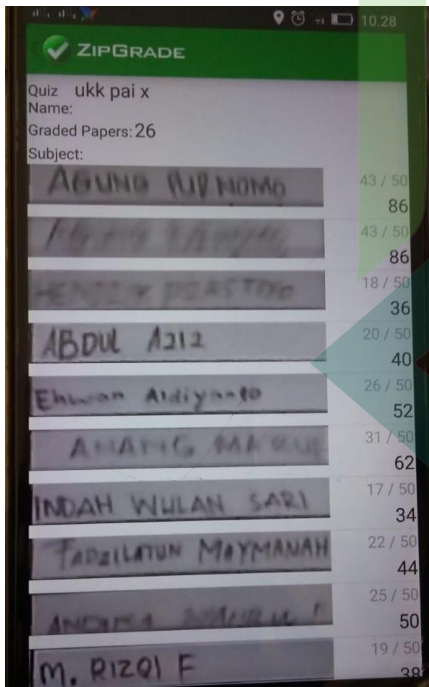 10.28
ZIPGRADE
Quiz Name: ukk pai x
Graded Papers: 26
Subject:
AGUNG PURNOMO 43 / 50
86
43 / 50
86
18 / 50
36
ABDUL AZIZ 20 / 50
40
Ehwan Aldiyanto 26 / 50
52
ANANG 31 / 50
62
INDAH WULAN SARI 17 / 50
34
FADZILATUN MAYMANAH 22 / 50
44
25 / 50
50
M. RIZQI F 19 / 50
38